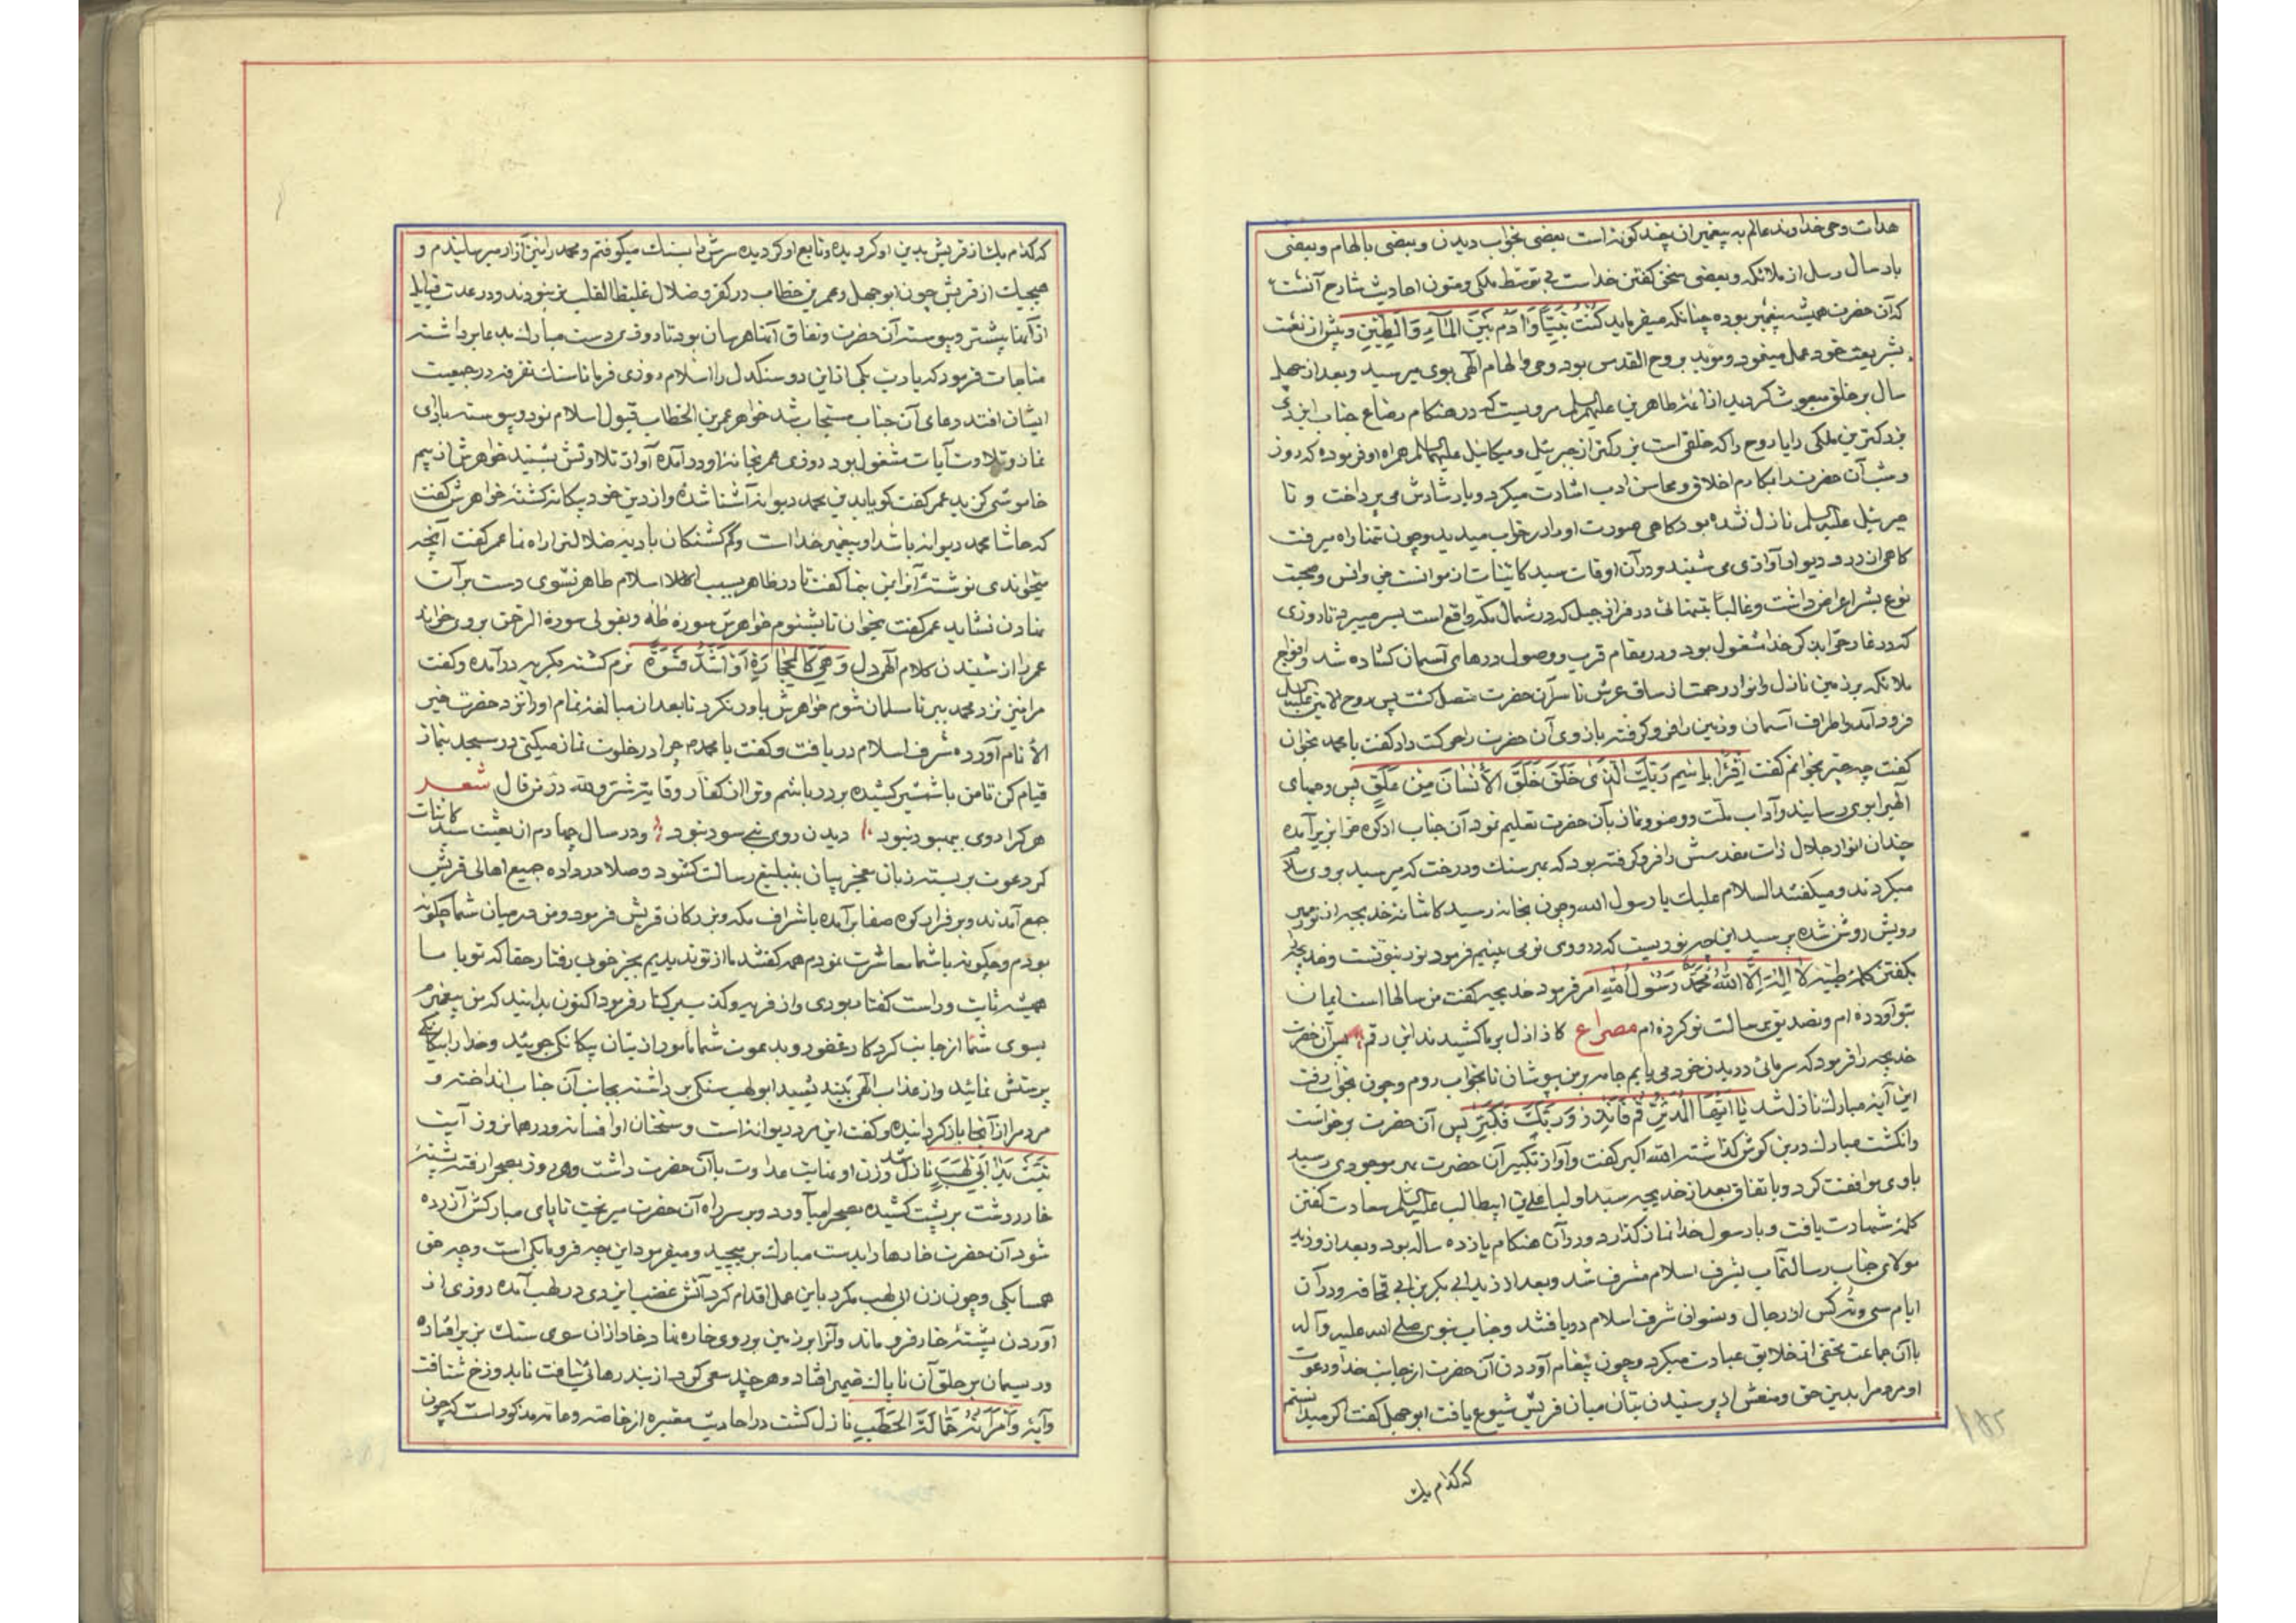 هدات وحی خداوند عالم به پیغمبران بچند کونه است بعضی بخواب دیدن و بعضی بالهام و بعضی
بارسال رسل از ملائکه و بعضی سخن کفتن خداست بی توسط ملکی و متون احادیث شارح آنست
که آن حضرت همیشه پیغمبر بوده چنانکه میفرماید کُنْتُ نَبِیّاً وَآدَمُ بَیْنَ الْمآءِ وَالطّینِ و پیش از بعثت
بشریعت خود عمل مینمود و مؤید بروح القدس بود و وحی و الهام الهی بوی میرسید و بعد از چهل
سال بر خلق مبعوث کردید از ائمه طاهرین علیهم السلم مرویست که در هنکام رضاع جناب ایزدی
بزرکترین ملکی را یا روح را که خلقی است بزرکتر از جبرئیل و میکائیل علیهما السلم همراه او فرموده که روز
و شب آن حضرت را بمکارم اخلاق و محاسن ادب اشارت میکرد و بارشادش می پرداخت و تا
جبرئیل علیه السلم نازل نشده بود کاهی صورت او را در خواب میدید و چون تنها راه میرفت
کاهی از در و دیوار آوازی می شنید و در آن اوقات سید کائنات از موانست جن و انس و صحبت
نوع بشر اعراض داشت و غالباً بتنهائی در فراز جبل که در شمال مکه واقع است بسر میبرد تا روزی
که در غار حرا بذکر خدا مشغول بود و در مقام قرب و وصول درهای آسمان کشاده شد و افواج
ملائکه بر زمین نازل و انوار رحمت از ساق عرش تا سر آن حضرت متصل کشت پس روح الامین علیه السلم
فرود آمد و اطراف آسمان و زمین را فرو کرفته بازوی آن حضرت را حرکت داد کفت یا محمد بخوان
کفت چه چیز بخوانم کفت اِقْرَأْ بِاسْمِ رَبِّکَ الَّذی خَلَقَ خَلَقَ الْاِنْسانَ مِنْ عَلَقٍ پس وحیهای
الهی را بوی رسانید و آداب ملت و وضو و نماز بآن حضرت تعلیم نمود آن جناب از کوه حرا بزیر آمده
چندان انوار جلال ذات مقدسش را فرو کرفته بود که بهر سنک و درخت که میرسید بروی سلام
میکردند و میکفتند السلام علیک یا رسول الله و چون بخانه رسید کاشانه خدیجه از نور
رویش روشن شده پرسید این چه نوریست که در روی تو می بینم فرمود نور نبوتست و خدیجه را
بکفتن کلمه طیبه لا اِلهَ اِلَّا اللهُ مُحَمَّدٌ رَسُولُ اللهِ امر فرمود خدیجه کفت من سالها است ایمان
بتو آورده ام و تصدیق رسالت تو کرده ام مصراع کز ازل بر ما کشیدند این رقم پس آن حضرت
خدیجه را فرمود که سرمائی در بدن خود می یابم جامه بر من پوشان تا بخواب روم و چون بخواب رفت
این آیه مبارکه نازل شد یا اَیُّهَا الْمُدَّثِّرُ قُمْ فَاَنْذِرْ وَرَبَّکَ فَکَبِّرْ پس آن حضرت برخواست
و انکشت مبارک در بن کوش کذاشته الله اکبر کفت و آواز تکبیر آن حضرت بهر موجودی رسید
با وی موافقت کرد و باتفاق بعد از خدیجه سید اولیا علی بن ابیطالب علیه السلم سعادت کفتن
کلمه شهادت یافت و با رسول خدا نماز کذارد و در آن هنکام یازده ساله بود و بعد از او زید
مولای جناب رسالتمآب بشرف اسلام مشرف شد و بعد از زید ابی بکر بن ابی قحافه و در آن
ایام سی و نه کس از رجال و نسوان شرف اسلام دریافتند و جناب نبوی صلی الله علیه و آله
با آن جماعت مخفی از خلایق عبادت میکرد و چون پیغام آوردن آن حضرت از جانب خدا و دعوت
او مردم را بدین حق و منعش از پرستیدن بتان میان قریش شیوع یافت ابو جهل کفت اکر میدانستم
که کدام یک
۱۸۵
که کدام یک از قریش بدین او کرویده و تابع او کردیده سرش را بسنک میکوفتم و محمد را نیز آزار میرسانیدم و
هیچیک از قریش چون ابو جهل و عمر بن خطاب در کفر و ضلال غلیظ القلب نبودند و در عدت قبایل
از آنها بیشتر و پیوسته آن حضرت و نفاق آنها هراسان بود تا روزی دست مبارک بدعا برداشته
مناجات فرمود که یا رب یکی از این دو سنکدل را اسلام روزی فرما تا سنک تفرقه در جمعیت
ایشان افتد دعای آن جناب مستجاب شد خواهر عمر بن الخطاب قبول اسلام نمود و پیوسته بادای
نماز و تلاوت آیات مشغول بود روزی عمر بخانه او در آمده آواز تلاوتش بشنید خواهرش از بیم
خاموشی کزید عمر کفت کویا بدین محمد دیوانه آشنا شده و از دین خود بیکانه کشته خواهرش کفت
که حاشا محمد دیوانه باشد او پیغمبر خدا است و کم کشتکان بادیه ضلالت را راه نما عمر کفت آنچه
میخواندی نوشته آنرا بمن بنما کفت تا در ظاهر بسبب اسلام طاهر نشوی دست بر آن
نهادن نشاید عمر کفت بخوان تا بشنوم خواهرش سوره طه و بقولی سورة الرحمن بروی خواند
عمر را از شنیدن کلام الهی دل وَهِیَ کَالْحِجارَةِ اَوْ اَشَدُّ قَسْوَةً نرم کشته بکریه در آمده و کفت
مرا نیز نزد محمد ببر تا مسلمان شوم خواهرش باور نکرد تا بعد از مبالغه تمام او را نزد حضرت خیر
الأنام آورده شرف اسلام دریافت و کفت یا محمد چرا در خلوت نماز میکنی در مسجد بنماز
قیام کن تا من با شمشیر کشیده بر در باشم و تو را از کفار وقایه شوم ولله در من قال شعر
هر کرا روی بهبود نبود دیدن روی نبی سود نبود و در سال چهارم از بعثت سید کائنات
کمر دعوت بر بسته زبان معجز بیان بتبلیغ رسالت کشود و صلا در داده جمیع اهالی قریش
جمع آمدند و بر فراز کوه صفا بر آمده باشراف مکه و بزرکان قریش فرمود من در میان شما چکونه
بودم و چکونه با شما معاشرت نمودم همه کفتند ما از تو ندیدیم بجز خوبی رفتار حقا که تو با ما
همیشه ثابت و راست کفتار بودی و از فریب و کذب بر کنار فرمود اکنون بدانید که من پیغمبرم
بسوی شما از جانب کردکار غفور و بدعوت شما مأمور از بتان بیکانکی جوئید و خدا را بیکانکی
پرستش نمائید و از عذاب الهی بیندیشید ابو لهب سنکی برداشته بجانب آن جناب انداخته و
مردم را از آنجا باز کردانیده و کفت این مرد دیوانه است و سخنان او افسانه و در همان روز آیت
تَبَّتْ یَدا اَبی لَهَبٍ نازل شد و زن او بغایت عداوت با آن حضرت داشت و هر روز بصحرا رفته پشته
خار درشت بر پشت کشیده بصحرا میآورد و بر سر راه آن حضرت میریخت تا پای مبارکش آزرده
شود آن حضرت خارها را بدست مبارک بر میچید و میفرمود این چه فرومایکی است و چه حق
همسایکی و چون زن ابی لهب مکرر باین عمل اقدام کرد آتش غضب ایزدی در لهب آمده روزی از
آوردن پشته خار فرو ماند و آنرا بر زمین بر روی خاره نهاد خار از آن سوی سنک بزیر افتاده
و ریسمان بر حلق آن ناپاک افتاد و هر چند سعی کرد از بند رهائی نیافت تا بدوزخ شتافت
و آیه وَامْرَأَتُهُ حَمّالَةَ الْحَطَبِ نازل کشت در احادیث معتبره از خاصه و عامه مذکور است که چون